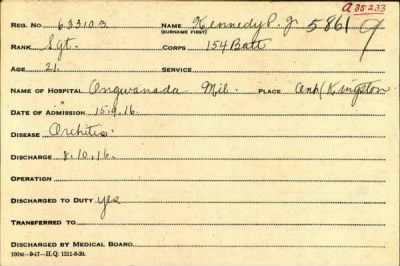 a 35233
REG. NO 633103 NAME Kennedy P. J. 5861 9
(SURNAME FIRST)
RANK Sgt. CORPS 154 Batt
AGE 21. SERVICE
NAME OF HOSPITAL Ongwanada Mil. PLACE Ont (Kingston
DATE OF ADMISSION 15.9.16.
DISEASE Orchitis.
DISCHARGE 8.10.16.
OPERATION
DISCHARGED TO DUTY yes
TRANSFERRED TO
DISCHARGED BY MEDICAL BOARD
100M—9-17—H.Q. 1211-8-30.